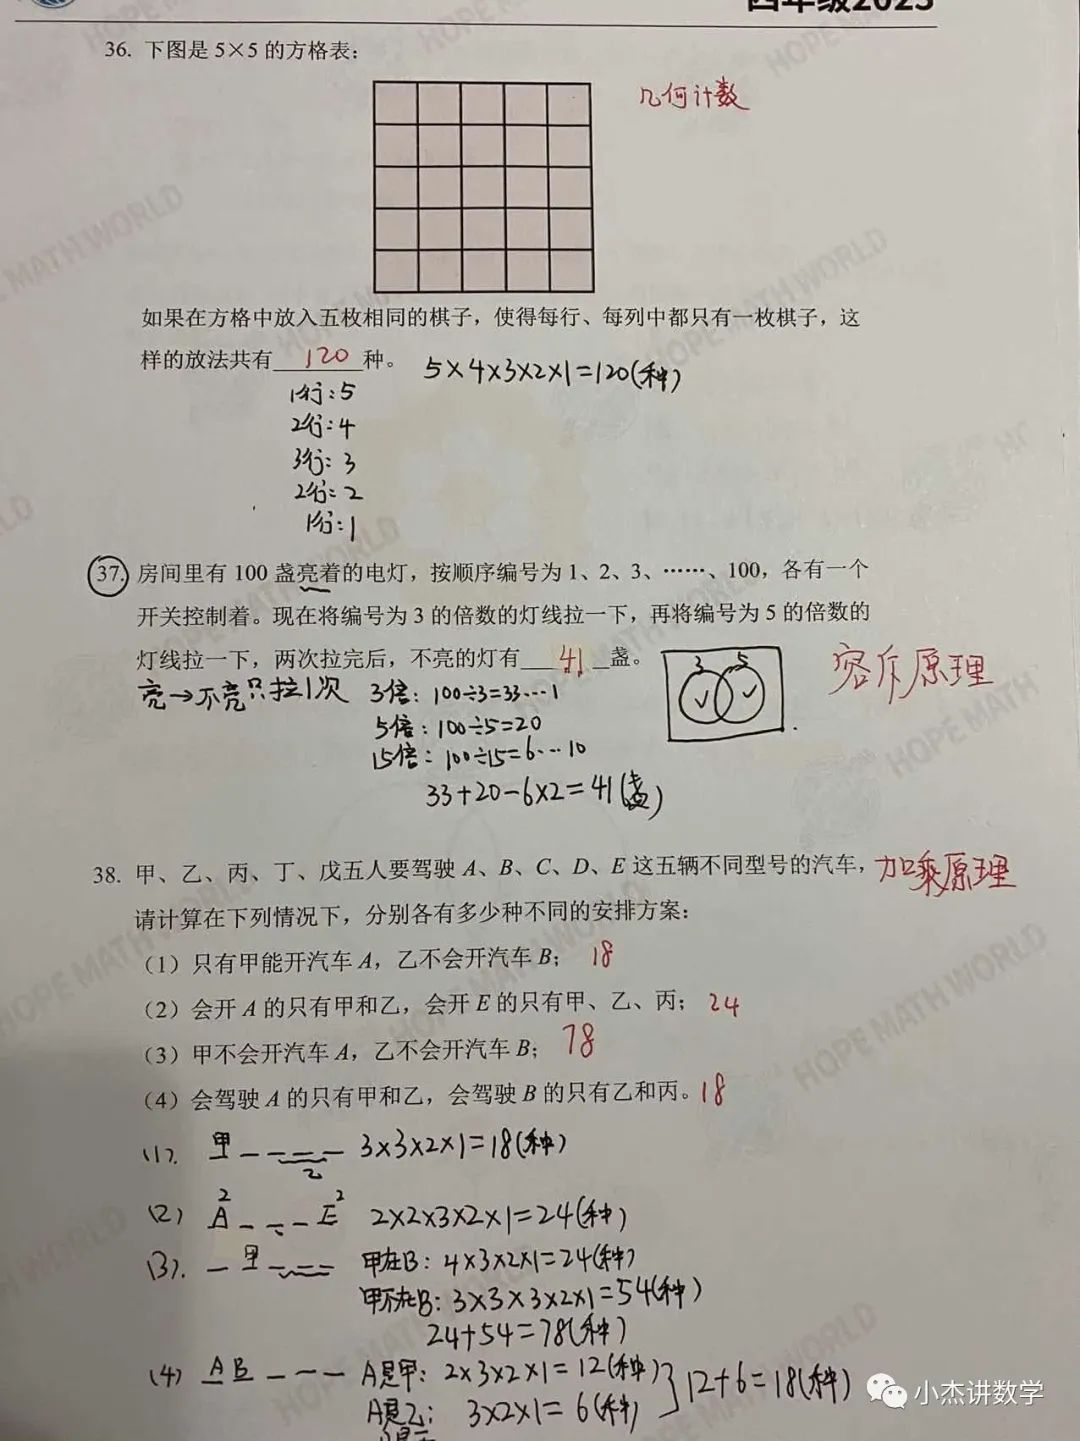 四年级2023
36. 下图是 5×5 的方格表：
几何计数
如果在方格中放入五枚相同的棋子，使得每行、每列中都只有一枚棋子，这
样的放法共有 120 种。 5×4×3×2×1=120(种)
1行：5
2行：4
3行：3
2行：2
1行：1
37. 房间里有 100 盏亮着的电灯，按顺序编号为 1、2、3、……、100，各有一个
开关控制着。现在将编号为 3 的倍数的灯线拉一下，再将编号为 5 的倍数的
灯线拉一下，两次拉完后，不亮的灯有 41 盏。
3 5
容斥原理
亮→不亮只拉1次 3倍：100÷3=33…1
5倍：100÷5=20
15倍：100÷15=6…10
33+20-6×2=41(盏)
38. 甲、乙、丙、丁、戊五人要驾驶 A、B、C、D、E 这五辆不同型号的汽车，
加乘原理
请计算在下列情况下，分别各有多少种不同的安排方案：
（1）只有甲能开汽车 A，乙不会开汽车 B； 18
（2）会开 A 的只有甲和乙，会开 E 的只有甲、乙、丙； 24
（3）甲不会开汽车 A，乙不会开汽车 B； 78
（4）会驾驶 A 的只有甲和乙，会驾驶 B 的只有乙和丙。 18
(1). 甲 乙 3×3×2×1=18(种)
(2) A 2 E 2 2×2×3×2×1=24(种)
(3). 甲 甲在B：4×3×2×1=24(种)
甲不在B：3×3×3×2×1=54(种)
24+54=78(种)
(4) A B A是甲：2×3×2×1=12(种)
A是乙：3×2×1=6(种)
12+6=18(种)
小杰讲数学
HOPE MATH WORLD